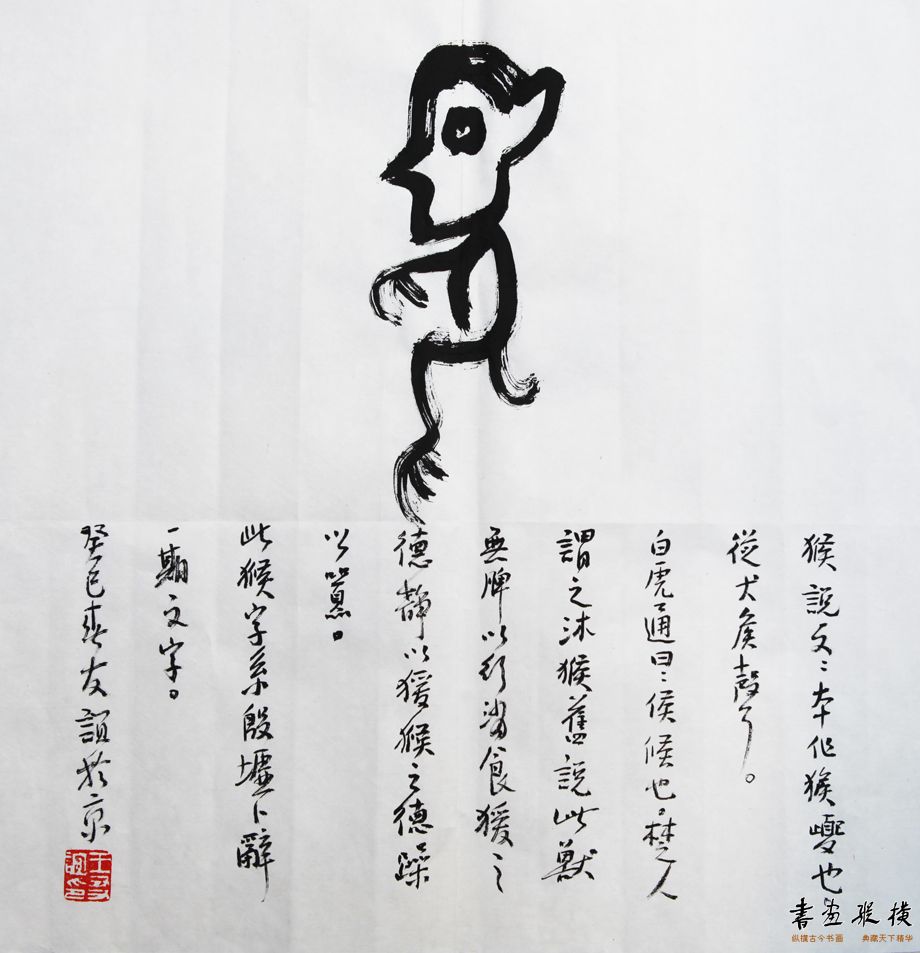 猴說文：本作猴夒也，
從犬矦聲。
白虎通曰：侯候也，楚人
謂之沐猴舊說此獸
無脾以行消食猨之
德靜以猨猴之德躁
以嚻。
此猴字系殷墟卜辭
一期文字。
癸巳春友誼於京
書畫縱橫
纵横古今书画 典藏天下精华